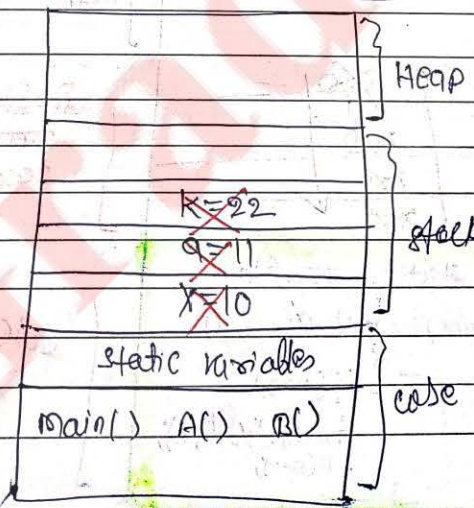 Heap
K=22
a=11
X=10
stack
static variables
code
Main() A() B()